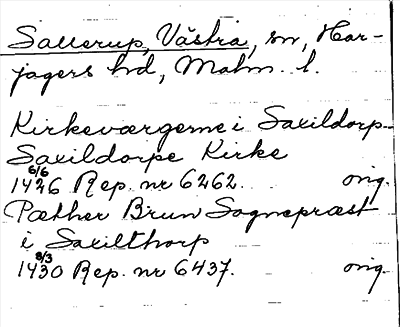 Sallerup, Västra, sn, Har-
jagers hd, Malm. l.
Kirkeværgerne i Saxildorp-
Saxildorpe Kirke
6/6
1426 Rep. nr 6262. orig.
Pæther Brun Sognepræst
i Saxilthorp
8/3
1430 Rep. nr 6437. orig.